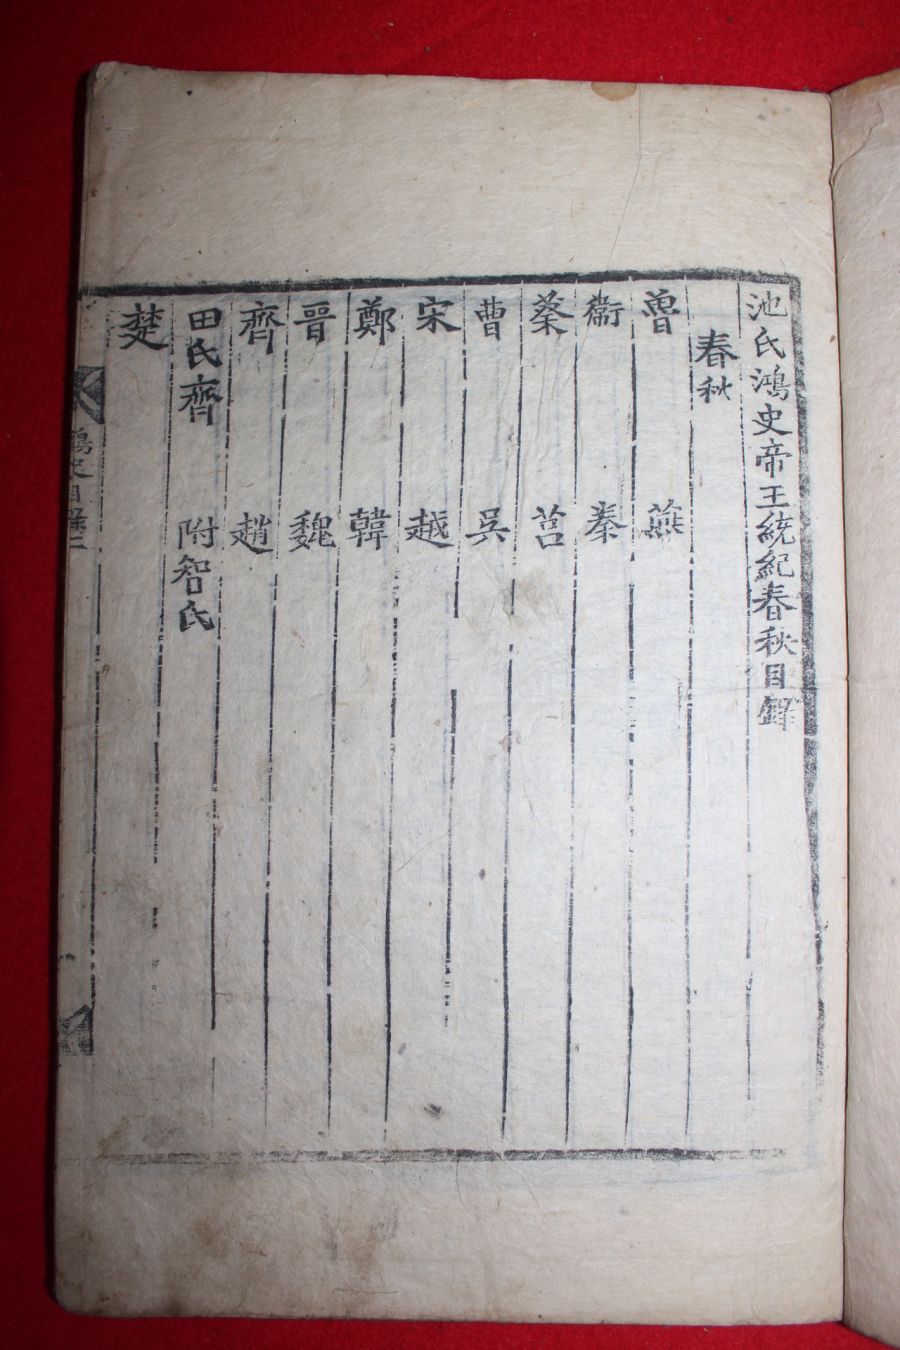 池氏鴻史帝王統紀春秋目錄
春秋
魯 燕
衞 秦
蔡 莒
曹 吳
宋 越
鄭 韓
晉 魏
齊 趙
田氏齊 附智氏
楚
鴻史目錄二